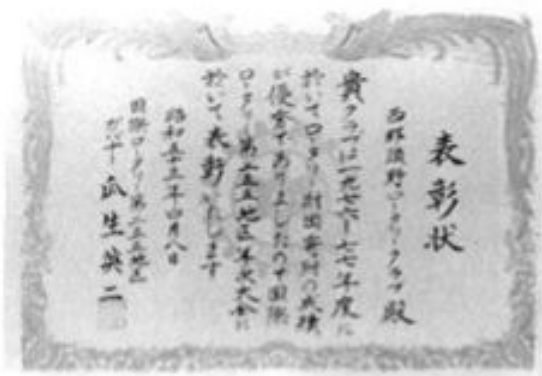 表彰状
西那須野ロータリークラブ殿
貴クラブは一九七六―七七年度に
於いてロータリー財団寄附の成績
が優秀でありましたので国際
ロータリー第二五五地区年次大会に
於いて表彰いたします
昭和五十三年四月八日
国際ロータリー第二五五地区
ガバナー 瓜生英二